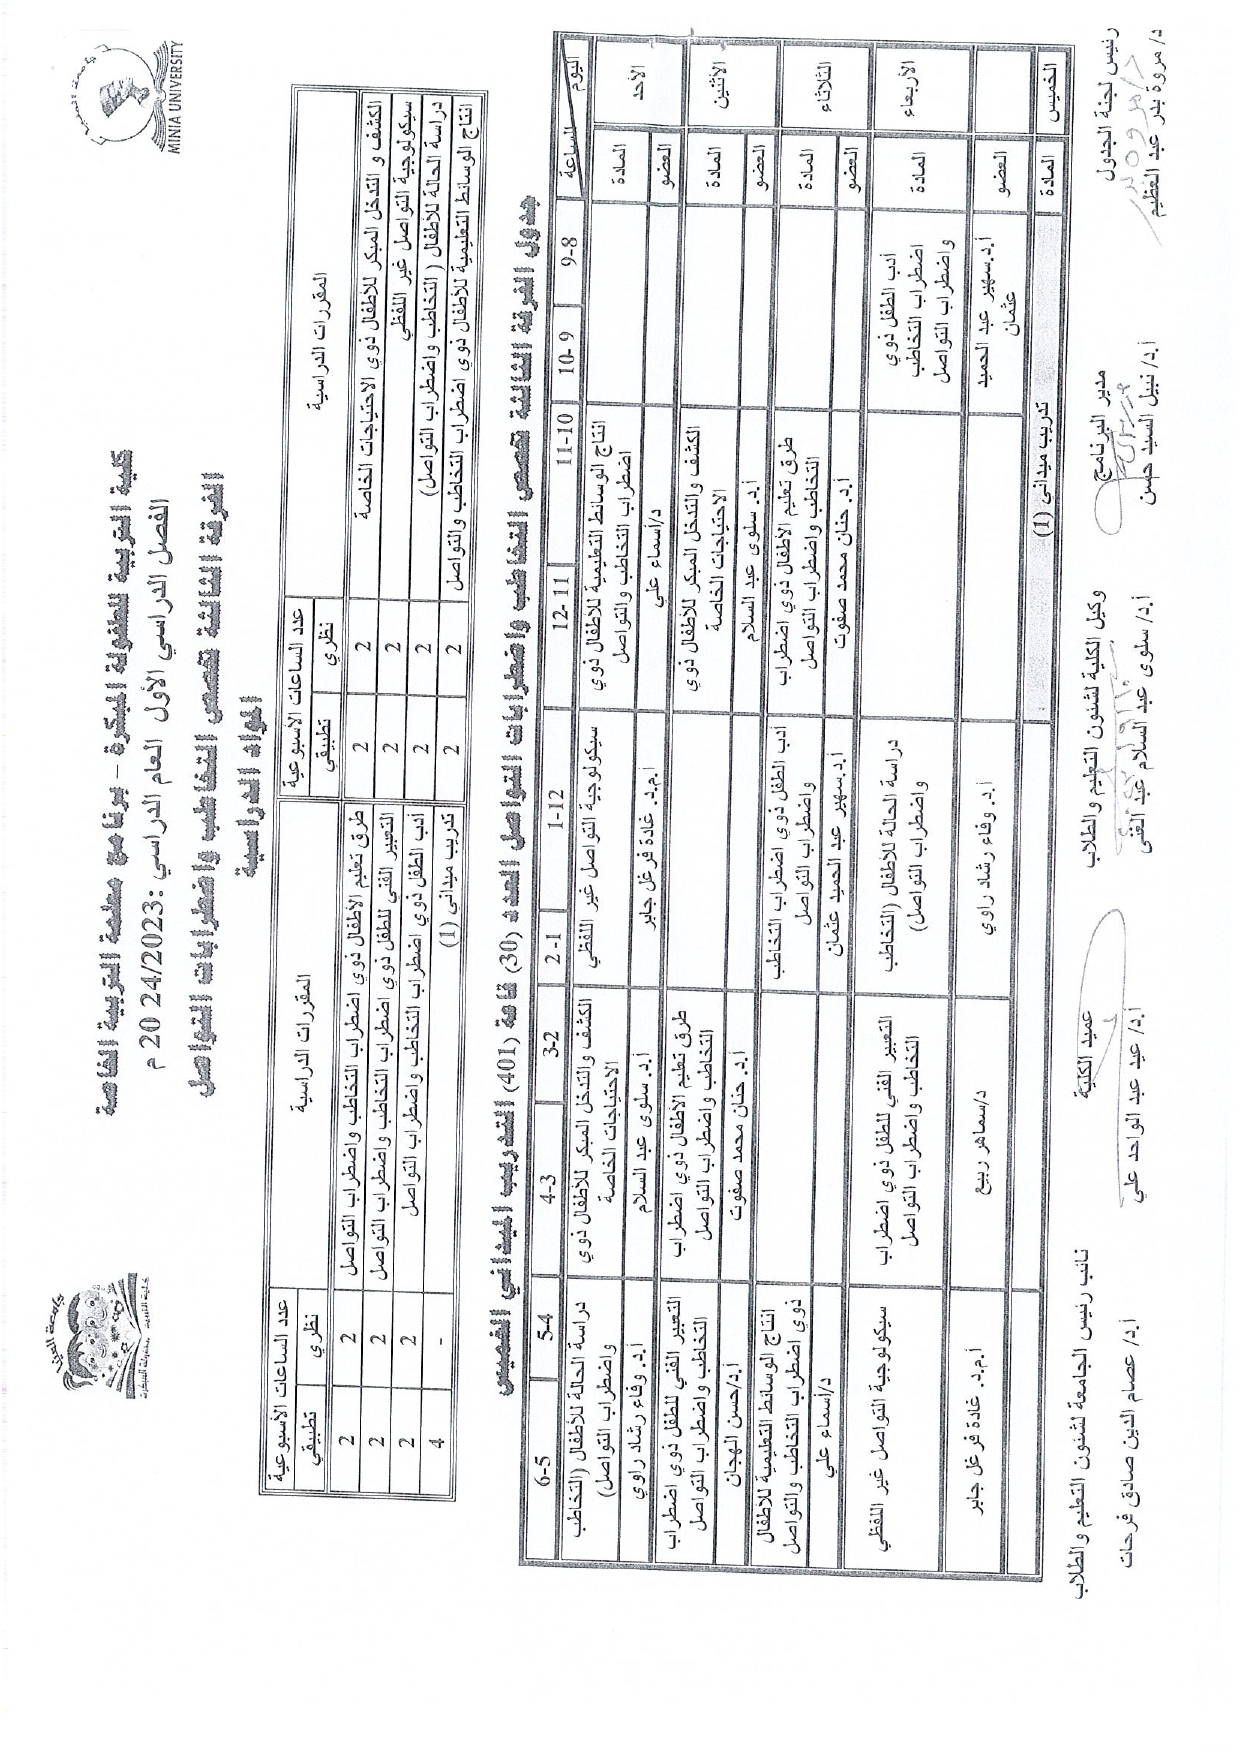 جامعة المنيا
MINIA UNIVERSITY
كلية التربية للطفولة المبكرة – برنامج معلمة التربية الخاصة
الفصل الدراسي الأول العام الدراسي :20 24/2023 م
الفرقة الثالثة تخصص التخاطب واضطرابات التواصل
المواد الدراسية
المقررات الدراسية
عدد الساعات الأسبوعية
المقررات الدراسية
عدد الساعات الأسبوعية
نظري
تطبيقي
نظري
تطبيقي
الكشف و التدخل المبكر للأطفال ذوي الاحتياجات الخاصة
2
2
طرق تعليم الأطفال ذوي اضطراب التخاطب واضطراب التواصل
2
2
سيكولوجية التواصل غير اللفظي
2
2
التعبير الفني للطفل ذوي اضطراب التخاطب واضطراب التواصل
2
2
دراسة الحالة للأطفال ( التخاطب واضطراب التواصل)
2
2
أدب الطفل ذوي اضطراب التخاطب واضطراب التواصل
2
2
انتاج الوسائط التعليمية للأطفال ذوي اضطراب التخاطب والتواصل
2
2
تدريب ميداني (1)
-
4
جدول الفرقة الثالثة تخصص التخاطب واضطرابات التواصل العدد (30) قاعة (401) التدريب الميداني الخميس
اليوم
الساعة
9-8
10- 9
11-10
12- 11
1-12
2 -1
3-2
4-3
5-4
6-5
الأحد
المادة
انتاج الوسائط التعليمية للأطفال ذوي
اضطراب التخاطب والتواصل
سيكولوجية التواصل غير اللفظي
الكشف والتدخل المبكر للأطفال ذوي
الاحتياجات الخاصة
دراسة الحالة للأطفال (التخاطب
واضطراب التواصل)
العضو
د/أسماء علي
ا.م.د. غادة فرغل جابر
أ.د. سلوى عبد السلام
أ.د.وفاء رشاد راوي
الأثنين
المادة
الكشف والتدخل المبكر للأطفال ذوي
الاحتياجات الخاصة
طرق تعليم الأطفال ذوي اضطراب
التخاطب واضطراب التواصل
التعبير الفني للطفل ذوي اضطراب
التخاطب واضطراب التواصل
العضو
أ.د. سلوى عبد السلام
أ.د. حنان محمد صفوت
أ.د/حسن الهجان
الثلاثاء
المادة
طرق تعليم الأطفال ذوي اضطراب
التخاطب واضطراب التواصل
أدب الطفل ذوي اضطراب التخاطب
واضطراب التواصل
انتاج الوسائط التعليمية للأطفال
ذوي اضطراب التخاطب والتواصل
العضو
أ.د. حنان محمد صفوت
أ.د.سهير عبد الحميد عثمان
د/أسماء علي
الأربعاء
المادة
أدب الطفل ذوي
اضطراب التخاطب
واضطراب التواصل
دراسة الحالة للأطفال (التخاطب
واضطراب التواصل)
التعبير الفني للطفل ذوي اضطراب
التخاطب واضطراب التواصل
سيكولوجية التواصل غير اللفظي
العضو
أ.د.سهير عبد الحميد
عثمان
أ.د. وفاء رشاد راوي
د/سماهر ربيع
ا.م.د. غادة فرغل جابر
الخميس
المادة
تدريب ميداني (1)
رئيس لجنة الجدول
مدير البرنامج
وكيل الكلية لشئون التعليم والطلاب
عميد الكلية
نائب رئيس الجامعة لشئون التعليم والطلاب
د/ مروة بدر عبد العظيم
أ.د/ نبيل السيد حسن
أ.د/ سلوى عبد السلام عبد الغنى
أ.د/ عيد عبد الواحد علي
أ.د/ عصام الدين صادق فرحات